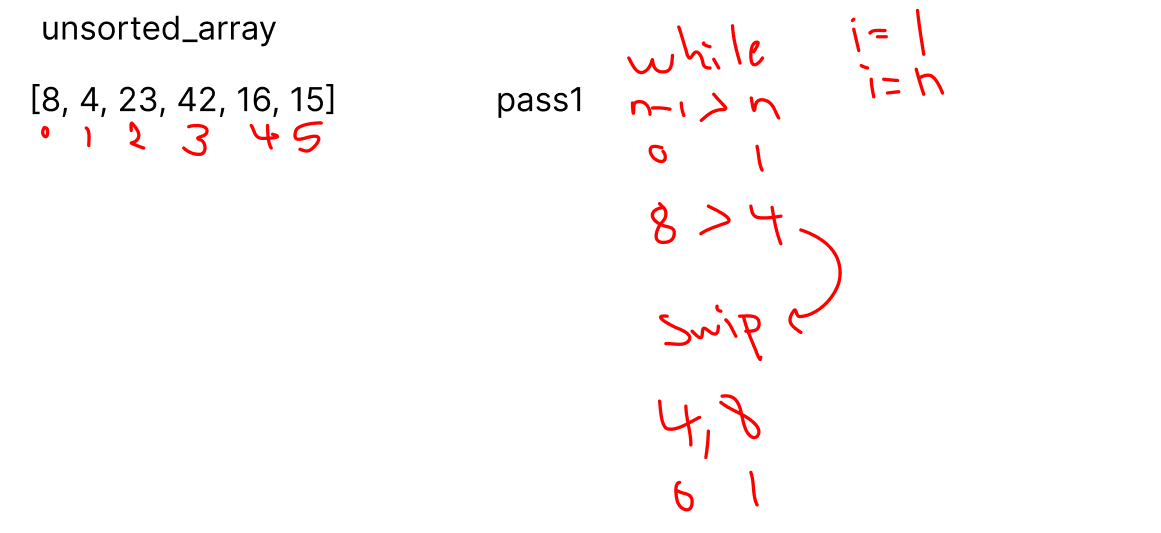 unsorted_array
[8, 4, 23, 42, 16, 15]
0 1 2 3 4 5
pass1
while
n-1 > n
0 1
8 > 4
swip
4, 8
0 1
i = 1
i = n